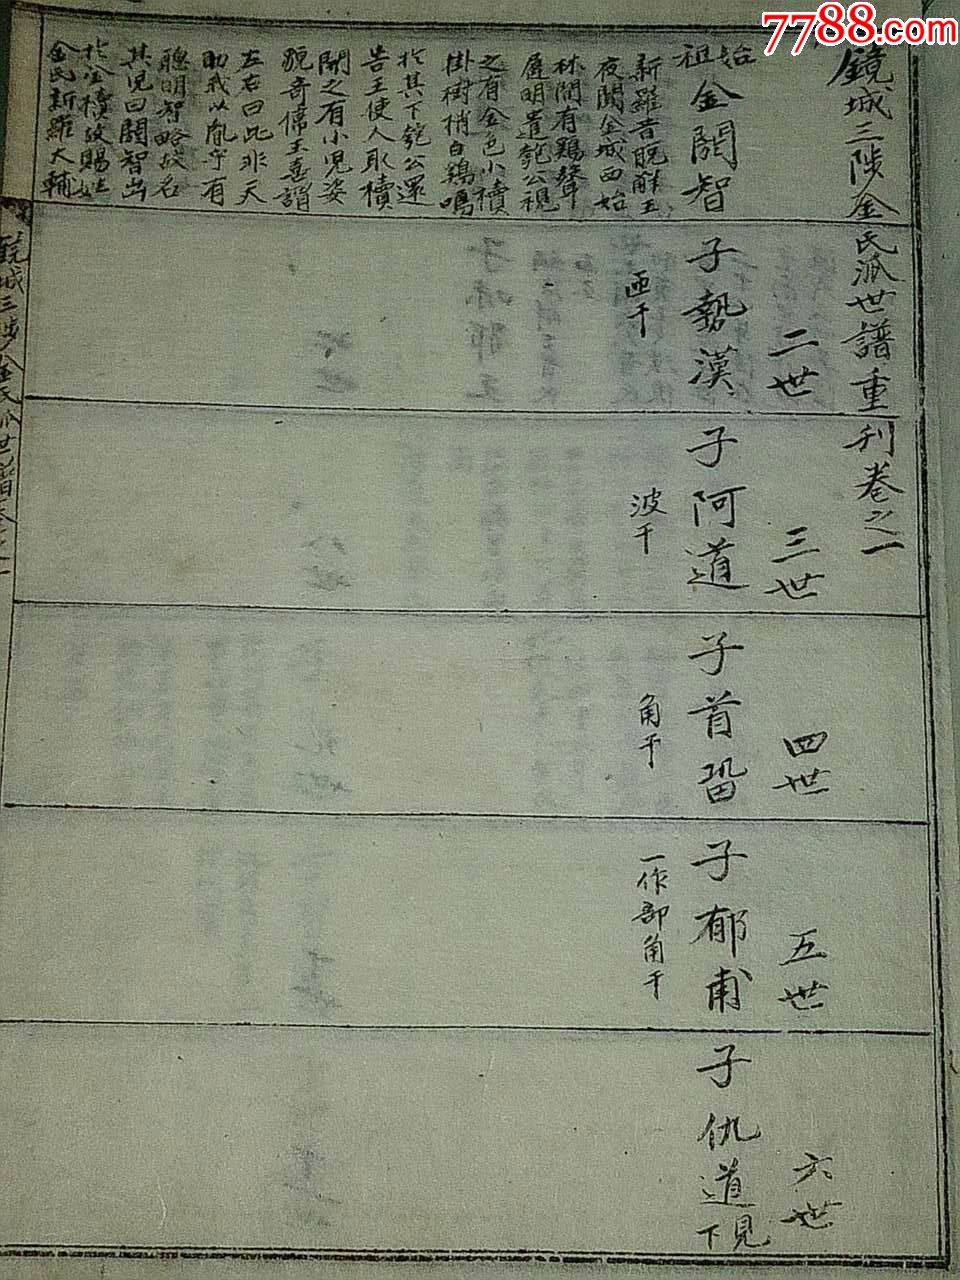 7788.com
鏡城三陟金氏派世譜重刊卷之一
始祖金閼智
新羅昔脫解王
夜聞金城西始
林間有鷄聲
遲明遣瓠公視
之有金色小櫝
掛樹梢白鷄鳴
於其下瓠公還
告王使人取櫝
開之有小児姿
貌奇偉王喜謂
左右曰此非天
助我以胤乎有
聰明智略故名
其児曰閼智出
於金櫝故賜姓
金氏新羅大輔
二世
子勢漢
匝干
三世
子阿道
波干
四世
子首留
角干
五世
子郁甫
一作部角干
六世
子仇道
下見
鏡城三陟金氏派世譜卷之一